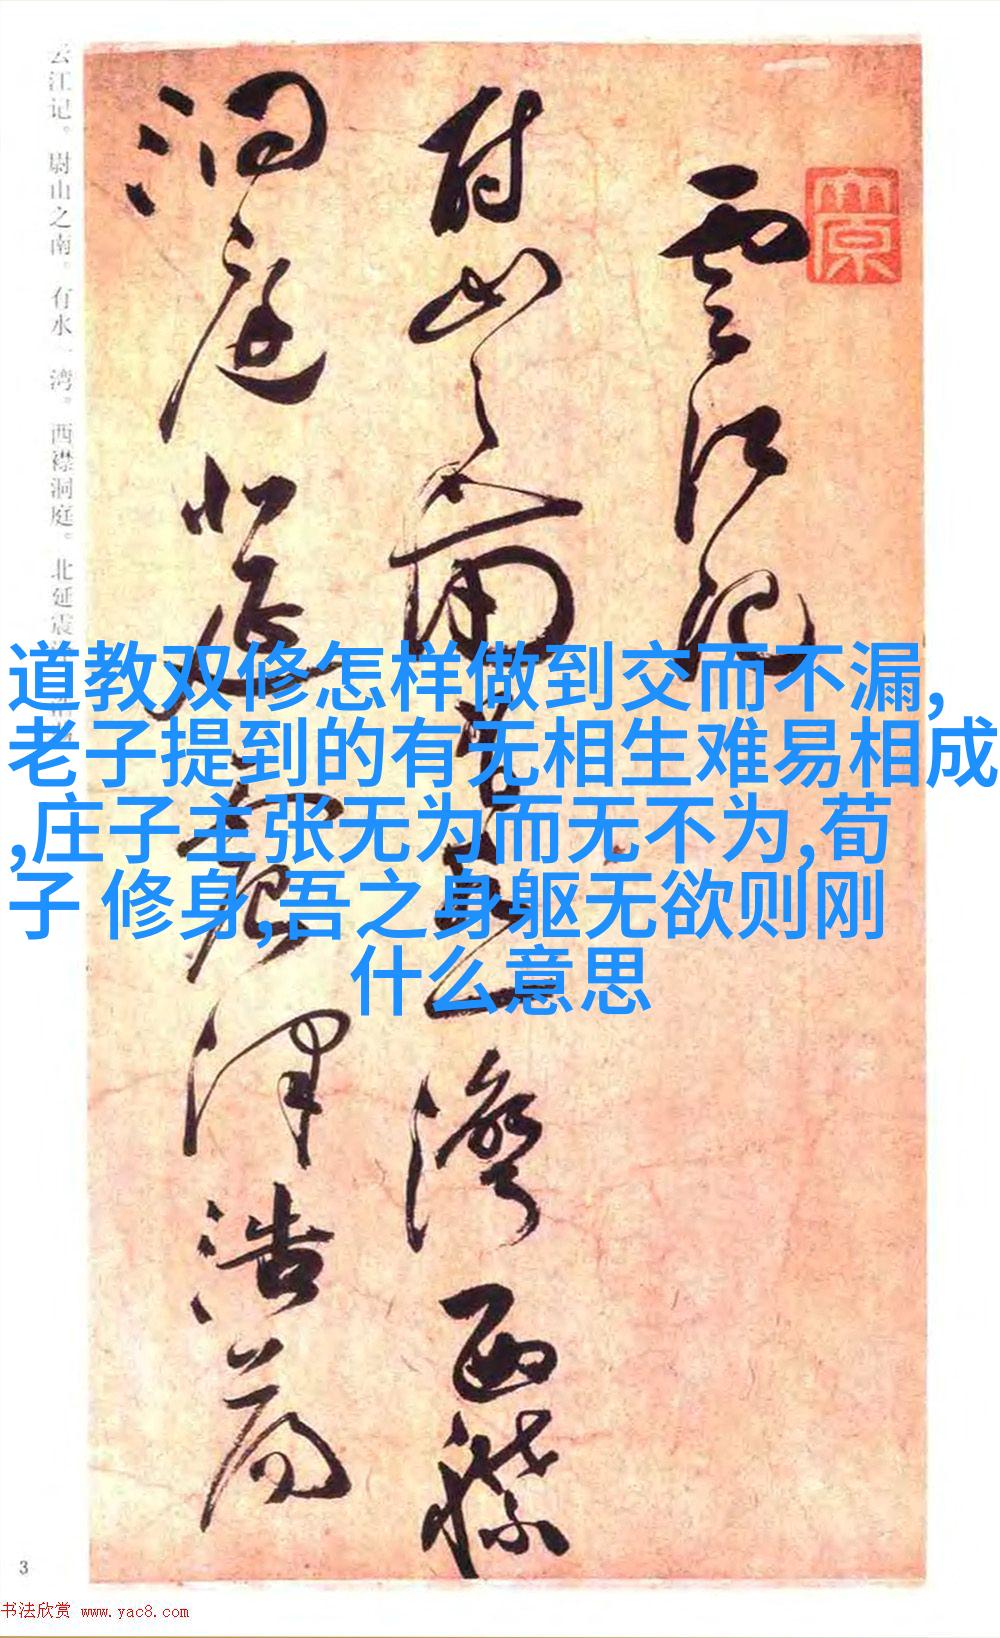 云江记。尉山之南。有水一湾。西襟洞庭。北延震
雲江记
尉山之南有水一灣西襟
洞庭北延震澤浩荡
道教双修怎样做到交而不漏,
老子提到的有无相生难易相成
,庄子主张无为而无不为,荀
子 修身,吾之身躯无欲则刚
什么意思
3
书法欣赏 www.yac8.com